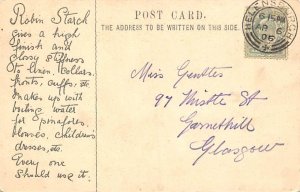 Robin Starch
gives a high
finish and
glossy stiffness
to linen, collars,
fronts, cuffs, etc
makes up with
boiling water
for pinafores,
blouses, children's
dresses, etc.
Every one
should use it.
POST CARD.
THE ADDRESS TO BE WRITTEN ON THIS SIDE.
Miss Gentles
97 St
Garnethill
Glasgow
HELENSBURGH
6 15 PM
AP 6